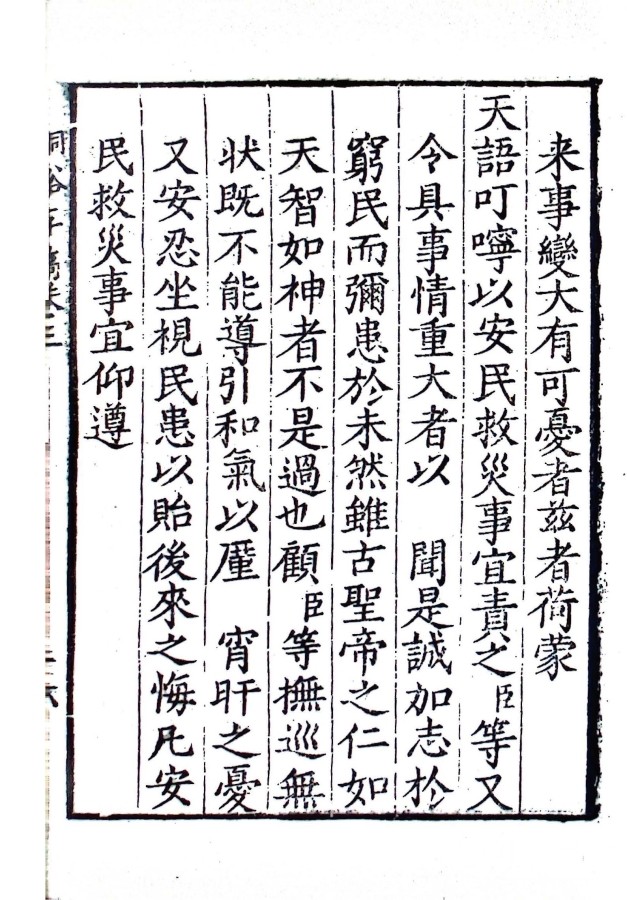 来事變大有可憂者茲者荷蒙
天語叮嚀以安民救災事宜責之臣等又
令具事情重大者以 聞是誠加志於
窮民而彌患於未然雖古聖帝之仁如
天智如神者不是過也顧臣等撫巡無
状既不能導引和氣以厪 宵旰之憂
又安忍坐視民患以貽後來之悔凡安
民救災事宜仰遵